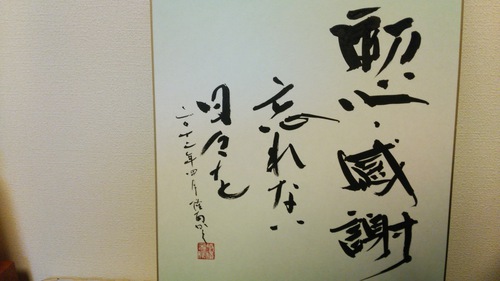 初心・感謝
忘れない
日々を
二〇十二年四月